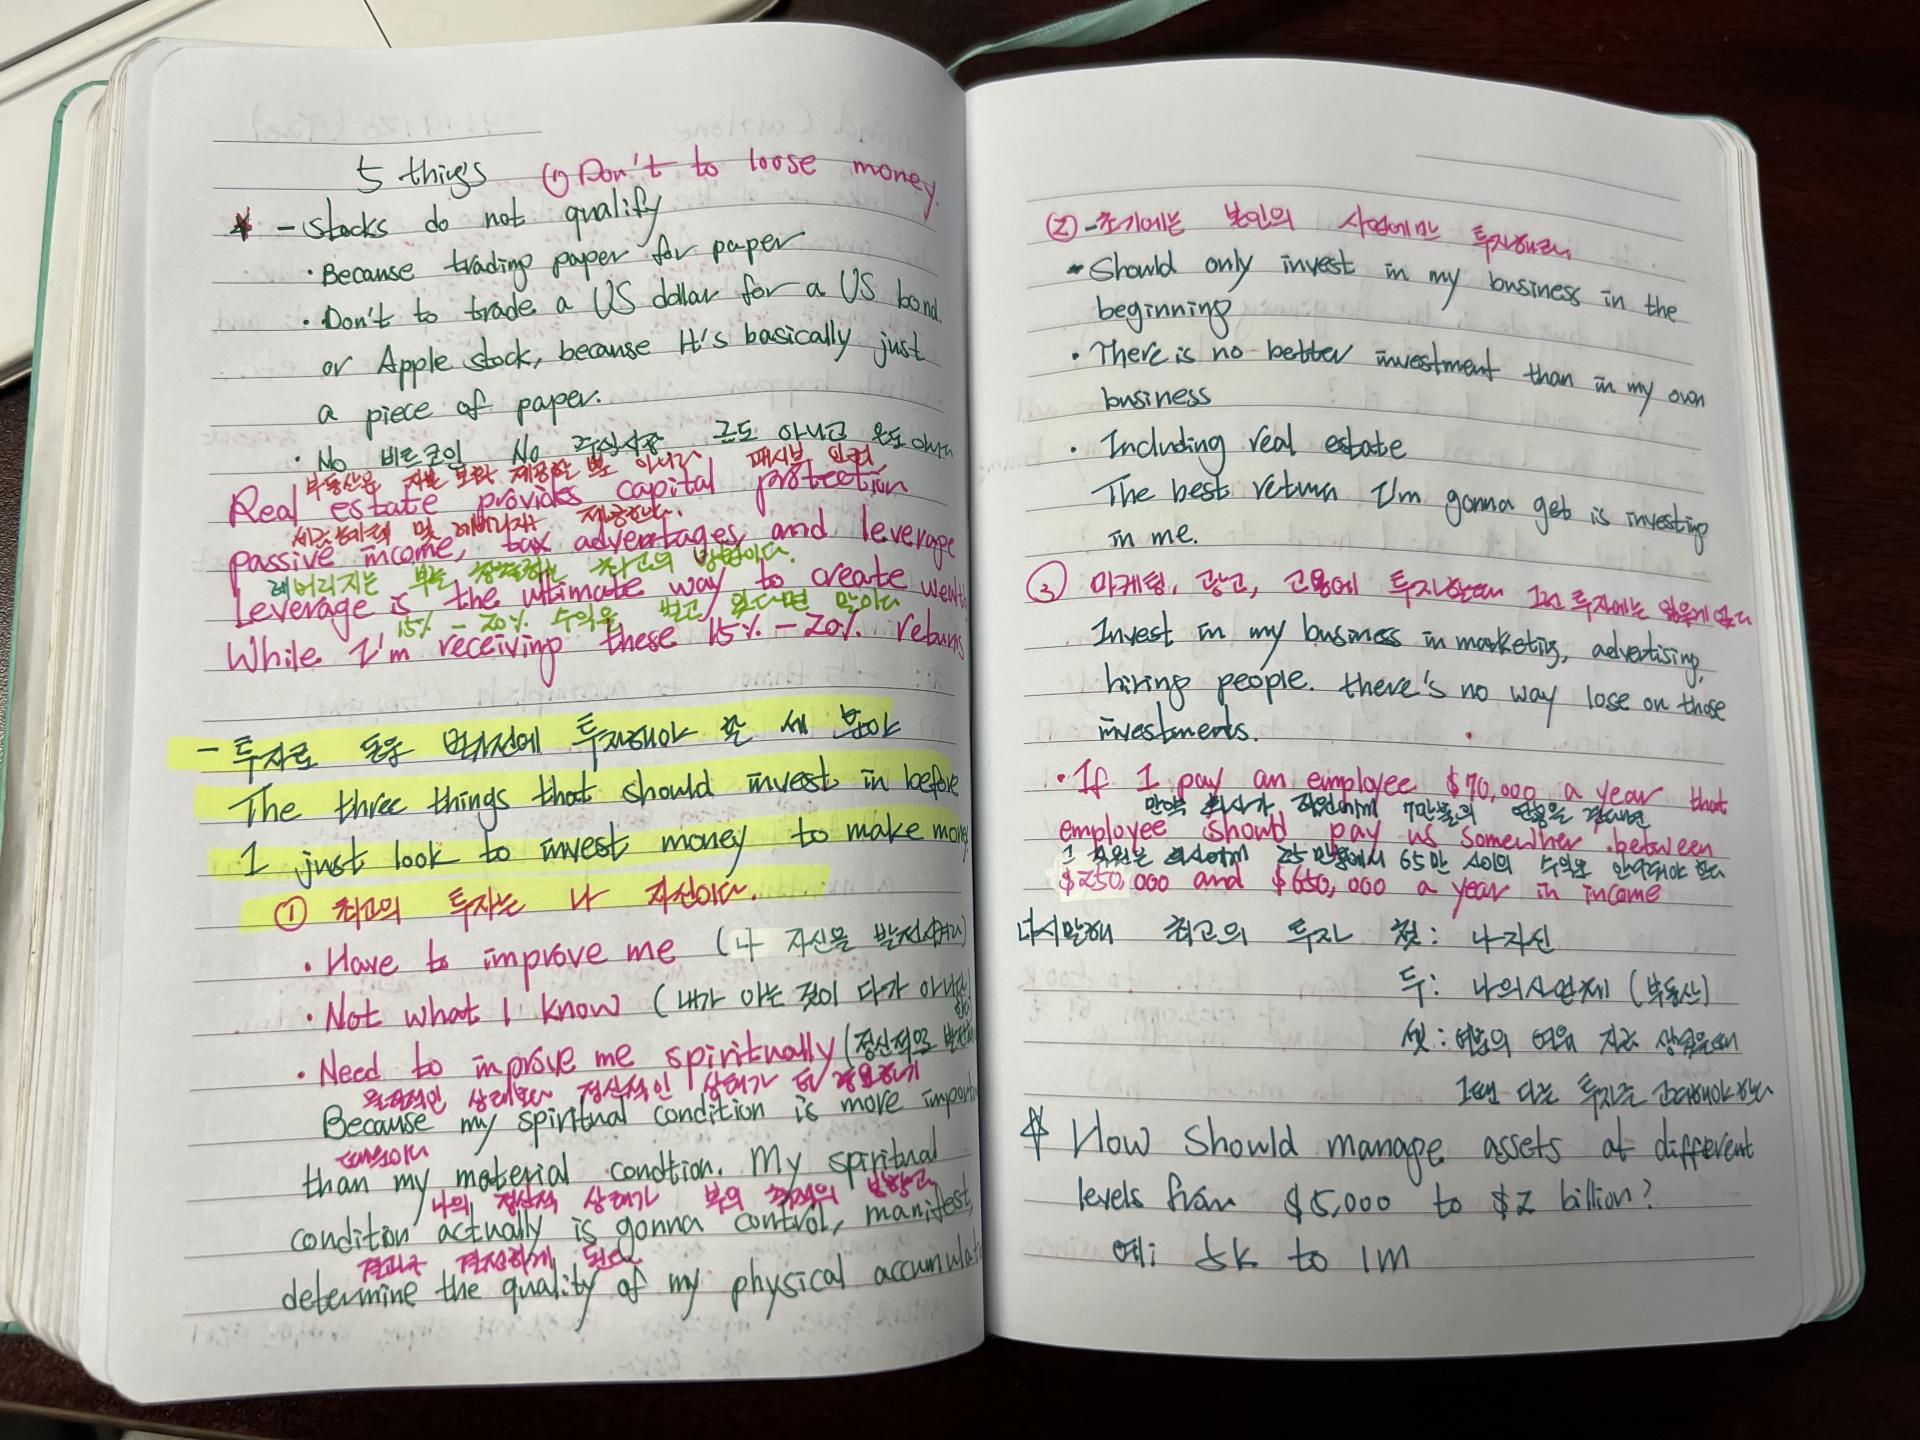 5 things ① Don't to loose money.
* - stocks do not qualify
· Because trading paper for paper
· Don't to trade a US dollar for a US bond
or Apple stock, because It's basically just
a piece of paper.
· No 비트코인 No 주식시장 금도 아니고 은도 아니
부동산은 자본 보호 제공할 뿐 아니라 패시브 인컴,
Real estate provides capital protection
세금혜택 및 레버리지 제공한다.
passive income, tax advertages and leverage
레버리지는 부를 창출하는 최고의 방법이다.
Leverage is the ultimate way to create wealth
15% - 20% 수익을 벌고 있다면 말이다
While I'm receiving these 15% - 20% returns
- 투자로 돈을 벌기전에 투자해야 할 세 분야
The three things that should invest in before
I just look to invest money to make money
① 최고의 투자는 나 자신이다.
· Have to improve me (나 자신을 발전시켜라)
· Not what I know (내가 아는 것이 다가 아니다)
· Need to improve me spiritually (정신적으로
물질적인 상태보다 정신적인 상태가 더 중요하기
Because my spiritual condition is more import
때문이다
than my material condtion. My spiritual
나의 정신적 상태가 부의
condition actually is gonna control, manifest,
결과를 결정하게 된다
determine the quality of my physical accumulati
② - 초기에는 본인의 사업에만 투자해라.
Should only invest in my business in the
beginning
· There is no better investment than in my own
business
· Including real estate
The best return I'm gonna get is investing
in me.
③ 마케팅, 광고, 고용에 투자한다 그런 투자에는 잃을게 없다
Invest in my business in marketig, advertising,
hiring people. there's no way lose on those
investments.
· If I pay an employee $70,000 a year that
만약 회사가 직원에게 7만불의 연봉을 준다면
employee should pay us somewher between
그 직원은 회사에게 25만불에서 65만 사이의 수익을 안겨줘야 한다
$250,000 and $650,000 a year in income
다시말해 최고의 투자 첫: 나 자신
두: 나의사업체 (부동산)
셋:
그땐 다른 투자는 고려해야 한다
☆ How should manage assets at different
levels from $5,000 to $2 billion?
예: 5k to 1M